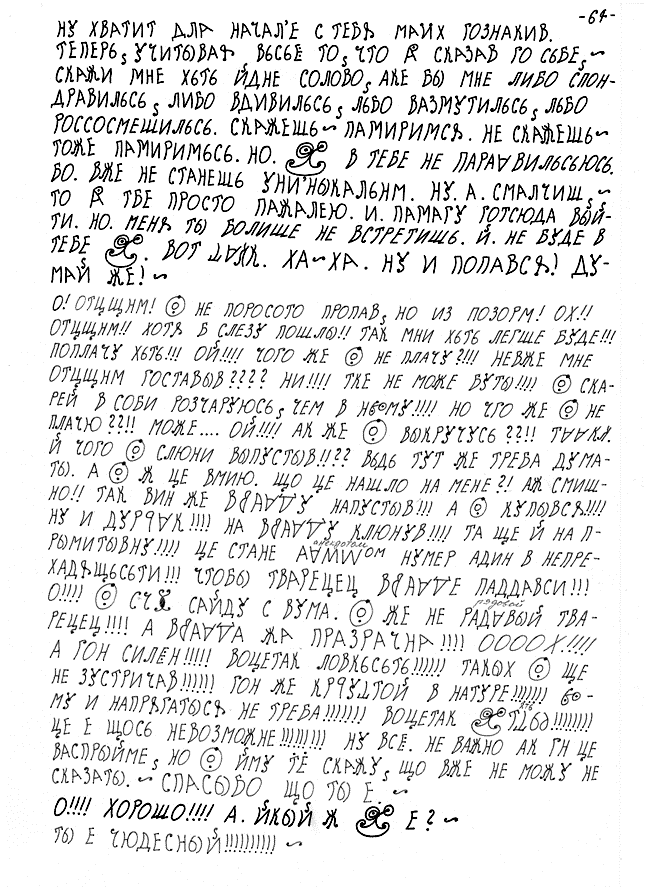 -64-
НУ ХВАТИТ ДЛА НАЧАЛ'Е С ТЕБЯ МАИХ ГОЗНАКИВ.
ТЕПЕРЬ, УЧИТЫВАЯ ВЬСЬЕ ТО, ЧТО Я СКАЗАВ ГО СЬБЕ, ~
СКАЖИ МНЕ ХЬТЬ ЙДНЕ СОЛОВО, АКЕ ВЫ МНЕ ЛИБО СПОН-
ДРАВИЛЬСЬ, ЛИБО ВДИВИЛЬСЬ, ЛЬБО ВАЗМУТИЛЬСЬ, ЛЬБО
РОССОСМЕШИЛЬСЬ. СКАЖЕШЬ ~ ПАМИРИМСЯ. НЕ СКАЖЕШЬ ~
ТОЖЕ ПАМИРИМЬСЬ. НО. В ТЕБЕ НЕ ПАРААВИЛЬСЬЮСЬ.
БО. ВЖЕ НЕ СТАНЕШЬ УНИ'НЫКАЛЬНМ. НУ. А. СМАЛЧИШ, ~
ТО Я ТБЕ ПРОСТО ПАЖАЛЕЮ. И. ПАМАГУ ГОТСЮДА ВЫЙ-
ТИ. НО. МЕНЯ ТЫ БОЛИШЕ НЕ ВСТРЕТИШЬ. Й. НЕ БУДЕ В
ТЕБЕ . ВОТ . ХА ~ ХА. НУ И ПОПАВСЯ! ДУ-
МАЙ ЖЕ! ~
О! ОТЦЩНМ! НЕ ПОРОСОТО ПРОПАВ, НО ИЗ ПОЗОРМ! ОХ!!
ОТЦЩНМ!! ХОТЯ Б СЛЕЗУ ПОШЛЫ!! ТАК МНИ ХЬТЬ ЛЕГШЕ БУДЕ!!!
ПОПЛАЧУ ХЬТЬ!!! ОЙ!!!! ЧОГО ЖЕ НЕ ПЛАЧУ?!!! НЕВЖЕ МНЕ
ОТЦЩНМ ГОСТАВЫВ???? НИ!!!! ТКЕ НЕ МОЖЕ БУТЫ!!!! СКА-
РЕЙ В СОБИ РОЗЧАРУЮСЬ, ЧЕМ В НЬОМУ!!!! НО ЧГО ЖЕ НЕ
ПЛАЧЮ??!! МОЖЕ.... ОЙ!!!! АК ЖЕ ВЫКРУЧУСЬ??!!
Й ЧОГО СЛЮНИ ВЫПУСТЫВ!!?? ВЫДЬ ТУТ ЖЕ ТРЕБА ДУМА-
ТЫ. А Ж ЦЕ ВМИЮ. ЩО ЦЕ НАШЛО НА МЕНЕ?! АЖ СМИШ-
НО!! ТАК ВИН ЖЕ НАПУСТЫВ!!! А КУПЫВСЯ!!!
НУ И ДУРРАК!!!! НА КЛЮНУВ!!!! ТА ЩЕ Й НА П-
РЫМИТЫВНУ!!!! ЦЕ СТАНЕ анекдотом НУМЕР АДИН В НЕПРЕ-
ХАДЯЩЬСЬТИ!!! ЧТОБЫ ТВАРЕЦЕЦ ПАДДАВСИ!!!
О!!!! САЙДУ С ВУМА. ЖЕ НЕ рядовой ТВА-
РЕЦЕЦ!!!! А ЖА ПРАЗРАЧНА!!!! ОООООХ!!!!
А ГОН СИЛЕН!!!!! ВОЦЕТАК ЛОВКЬСЬТЬ!!!!!! ТАКЫХ ЩЕ
НЕ ЗУСТРИЧАВ!!!!!! ГОН ЖЕ В НАТУРЕ!!!!!!! ЙО-
МУ И НАПРЯГАТЬСЯ НЕ ТРЕБА!!!!!!! ВОЦЕТАК
ЦЕ Е ЩОСЬ НЕВОЗМОЖНЕ!!!!!!!!! НУ ВСЁ. НЕ ВАЖНО АК ГН ЦЕ
ВАСПРЫЙМЕ, НО ЙМУ ТЕ СКАЖУ, ЩО ВЖЕ НЕ МОЖУ НЕ
СКАЗАТЫ. ~ СПАСЫБО ЩО ТЫ Е. ~
О!!!! ХОРОШО!!!! А. ЙКЫЙ Ж Е? ~
ТЫ Е ЧЮДЕСНЫЙ!!!!!!!!!! ~